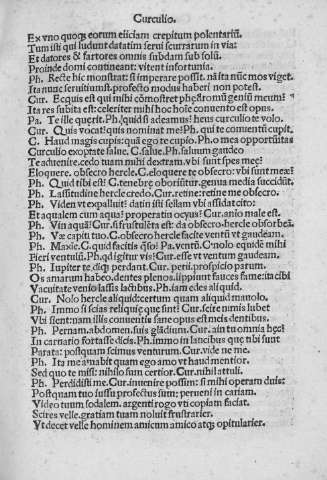 Curculio.
Ex vno quoq; eorum eiiciam crepitum polentariū.
Tum isti qui ludunt datatim serui scurrarum in via:
Et datores & fartores omnis subdam sub solū.
Proinde domi contineant: vitent infortunia.
Ph. Recte hic monstrat: si imperare possit. nā ita nūc mos viget.
Ita nunc seruitiumst. profecto modus haberi non potest.
Cur. Ecquis est qui mihi cōmonstret phędromū genium meum?
Ita res subita est: celeriter mihi hoc hoīe conuento est opus.
Pa. Te ille quęrit. Ph. quid si adeamus? heus curculio te volo.
Cur. Quis vocat? quis nominat me? Ph. qui te conuentū cupit.
C. Haud magis cupis: quā ego te cupio. Ph. o mea opportūitas
Curculio exoptate salue. C. salue. Ph. saluum gaudeo
Te aduenire. cedo tuam mihi dextram. vbi sunt spes meę?
Eloquere. obsecro hercle. C. eloquere te obsecro: vbi sunt meæ?
Ph. Quid tibi est? C. tenebrę oboriūtur. genua inedia succidūt.
Ph. Lassitudine hercle credo. Cur. retine: retine me obsecro.
Ph. Viden vt expalluit? datin isti sellam vbi assidat cito:
Et aqualem cum aqua? properatin ocyus? Cur. anio male est.
Ph. Vin aquā? Cur. si frustulēta est: da obsecro: hercle obsorbeā.
Ph. Væ capiti tuo. C. obsecro hercle facite ventū vt gaudeam.
Ph. Maxiē. C. quid facitis q̄so? Pa. ventū. C. nolo equidē mihi
Fieri ventulū. Ph. qd igitur vis? Cur. esse vt ventum gaudeam.
Ph. Iupiter te diiq; perdant. Cur. perii. prospicio parum.
Os amarum habeo. dentes plenos. lippiunt fauces fame: ita cibi
Vacuitate venio lassis lactibus. Ph. iam edes aliquid.
Cur. Nolo hercle aliquid: certum quam aliquid mauolo.
Ph. Immo si scias reliquię quę sint? Cur. scire nimis lubet
Vbi sient: nam illis conuentis sane opus est meis dentibus.
Ph. Pernam. abdomen. suis glādium. Cur. ain tu omnia hęc?
In carnario fortasse dicis. Ph. immo in lancibus quę tibi sunt
Parata: postquam scimus venturum. Cur. vide ne me.
Ph. Ita me amabit quam ego amo vt haud mentior.
Sed quo te misi: nihilo sum certior. Cur. nihil attuli.
Ph. Perdidisti me. Cur. inuenire possim: si mihi operam duis:
Postquam tuo iussu profectus sum: perueni in cariam.
Video tuum sodalem. argenti rogo vti copiam faciat.
Scires velle. gratiam tuam noluit frustrarier.
Vt decet velle hominem amicum amico atq; opitularier.